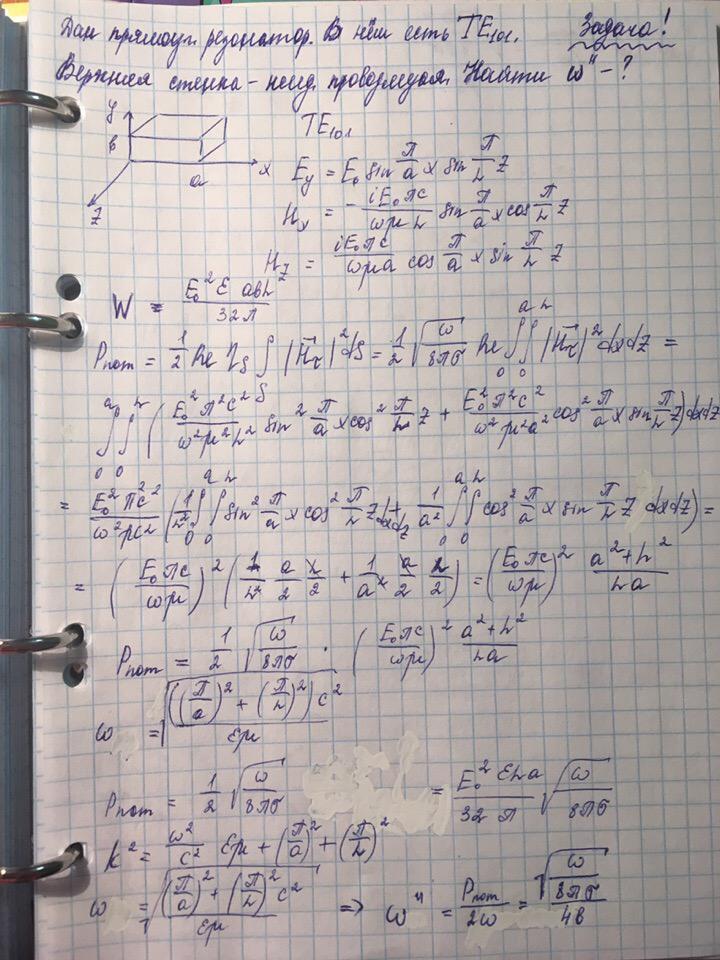 Дан прямоуг. резонатор. В нём есть TE₁₀₁. Задача!
Верхняя стенка – неид. проводящая. Найти ω" – ?
y
b
a
x
z
TE₁₀₁
E_y = E₀ sin π/a x sin π/L z
H_x = – iE₀πc/ωμL sin π/a x cos π/L z
H_z = iE₀πc/ωμa cos π/a x sin π/L z
W = E₀²ε abL/32π
P_пот = 1/2 Re η_s ∫_S |H⃗_τ|² dS = 1/2 √(ω/8πσ) Re ∫₀^a ∫₀^L |H⃗_τ|² dx dz =
∫₀^a ∫₀^L (E₀²π²c²/ω²μ²L² sin² π/a x cos² π/L z + E₀²π²c²/ω²μ²a² cos² π/a x sin² π/L z) dx dz
= E₀²πc²/ω²μ (1/L² ∫₀^a ∫₀^L sin² π/a x cos² π/L z dx dz + 1/a² ∫₀^a ∫₀^L cos² π/a x sin π/L z dx dz) =
= (E₀πc/ωμ)² (1/L² a/2 L/2 + 1/a² a/2 L/2) = (E₀πc/ωμ)² (a² + L²)/La
P_пот = 1/2 √(ω/8πσ) · (E₀πc/ωμ)² (a² + L²)/La
ω = √(((π/a)² + (π/L)²) c²/εμ)
P_пот = 1/2 √(ω/8πσ) = E₀² εLa/32 π √(ω/8πσ)
k² = ω²/c² εμ + (π/a)² + (π/L)²
ω = √((π/a)² + (π/L)² c²/εμ) ⇒ ω" = P_пот/2ω = √(ω/8πσ)/4b